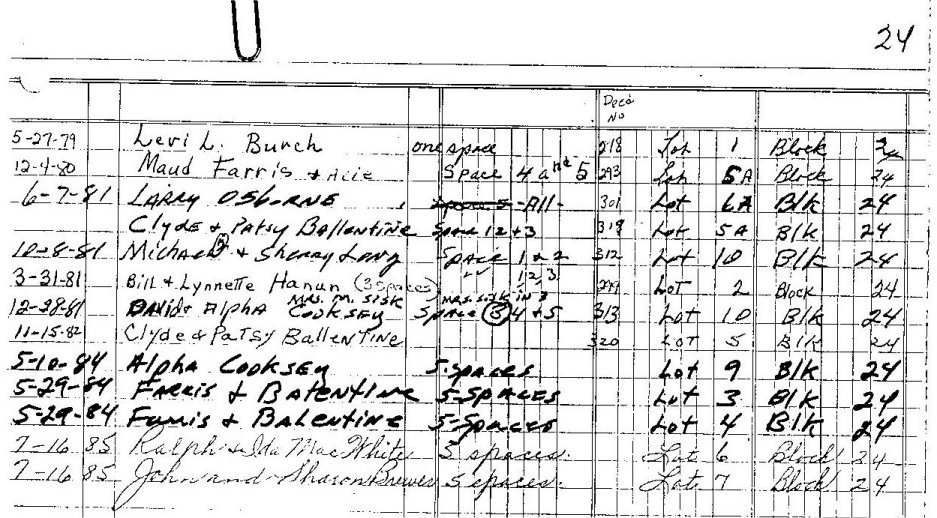 24
Deed No
5-27-79 Levi L. Burch one space 218 Lot 1 Block 24
12-4-80 Maud Farris & Acie Space 4 and 5 293 Lot 5A Block 24
6-7-81 LARRY OSBORNE -All- 301 Lot 6A Blk 24
Clyde & Patsy Ballentine Space 1 2 + 3 319 Lot 5A Blk 24
10-8-81 Michael & Sherry Long Space 1 & 2 312 Lot 10 Blk 24
3-31-81 Bill & Lynnette Hanun (3 spaces) 1, 2, 3 299 Lot 2 Block 24
Mrs. M. Sisk Mrs Sisk in 3
12-28-81 David & Alpha Cooksey Space 3 4 + 5 313 Lot 10 Blk 24
11-15-82 Clyde & Patsy Ballentine 320 Lot 5 Blk 24
5-10-84 Alpha Cooksey 5-spaces Lot 9 Blk 24
5-29-84 Farris & Balentine 5-Spaces Lot 3 Blk 24
5-29-84 Farris & Balentine 5-Spaces Lot 4 Blk 24
7-16 85 Ralph & Ida Mae White 5 spaces. Lot 6 Block 24
7-16 85 John and Sharon Brewer 5 spaces. Lot 7 Block 24